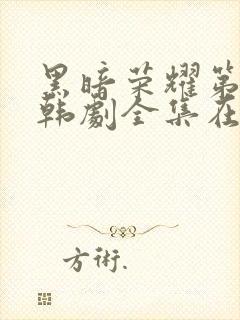 黑暗荣耀第
韩劇全集在
方術.